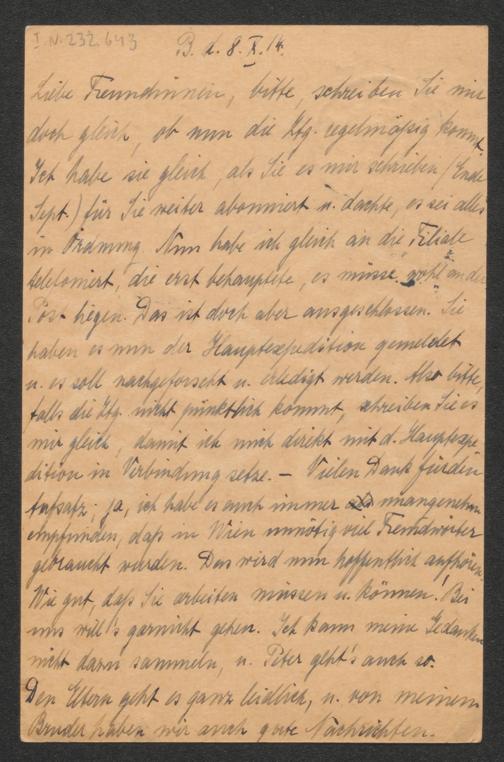 I.N. 232.643
B. d. 8. X. 14.
Liebe Freundinnen, bitte, schreiben Sie mir
doch gleich, ob nun die Ztg. regelmäßig kommt.
Ich habe sie gleich, als Sie es mir schrieben (Ende
Sept.) für Sie weiter abonniert u. dachte, es sei alles
in Ordnung. Nun habe ich gleich an die Filiale
telefoniert, die erst behauptete, es müsse „wohl“ an der
Post liegen. Das ist doch aber ausgeschlossen. Sie
haben es nun der Hauptexpedition gemeldet
u. es soll nachgeforscht u. erledigt werden. Also bitte,
falls die Ztg. nicht pünktlich kommt, schreiben Sie es
mir gleich, damit ich mich direkt mit d. Hauptexpe
dition in Verbindung setze. – Vielen Dank für den
Aufsatz; ja, ich habe es auch immer unangenehm
empfunden, daß in Wien unnötig viel Fremdwörter
gebraucht wurden. Das wird nun hoffentlich aufhören.
Wie gut, daß Sie arbeiten müssen u. können! Bei
uns will's garnicht gehen. Ich kann meine Gedanken
nicht dazu sammeln, u. Peter geht's auch so.
Den Eltern geht es ganz leidlich, u. von meinem
Bruder haben wir auch gute Nachrichten.